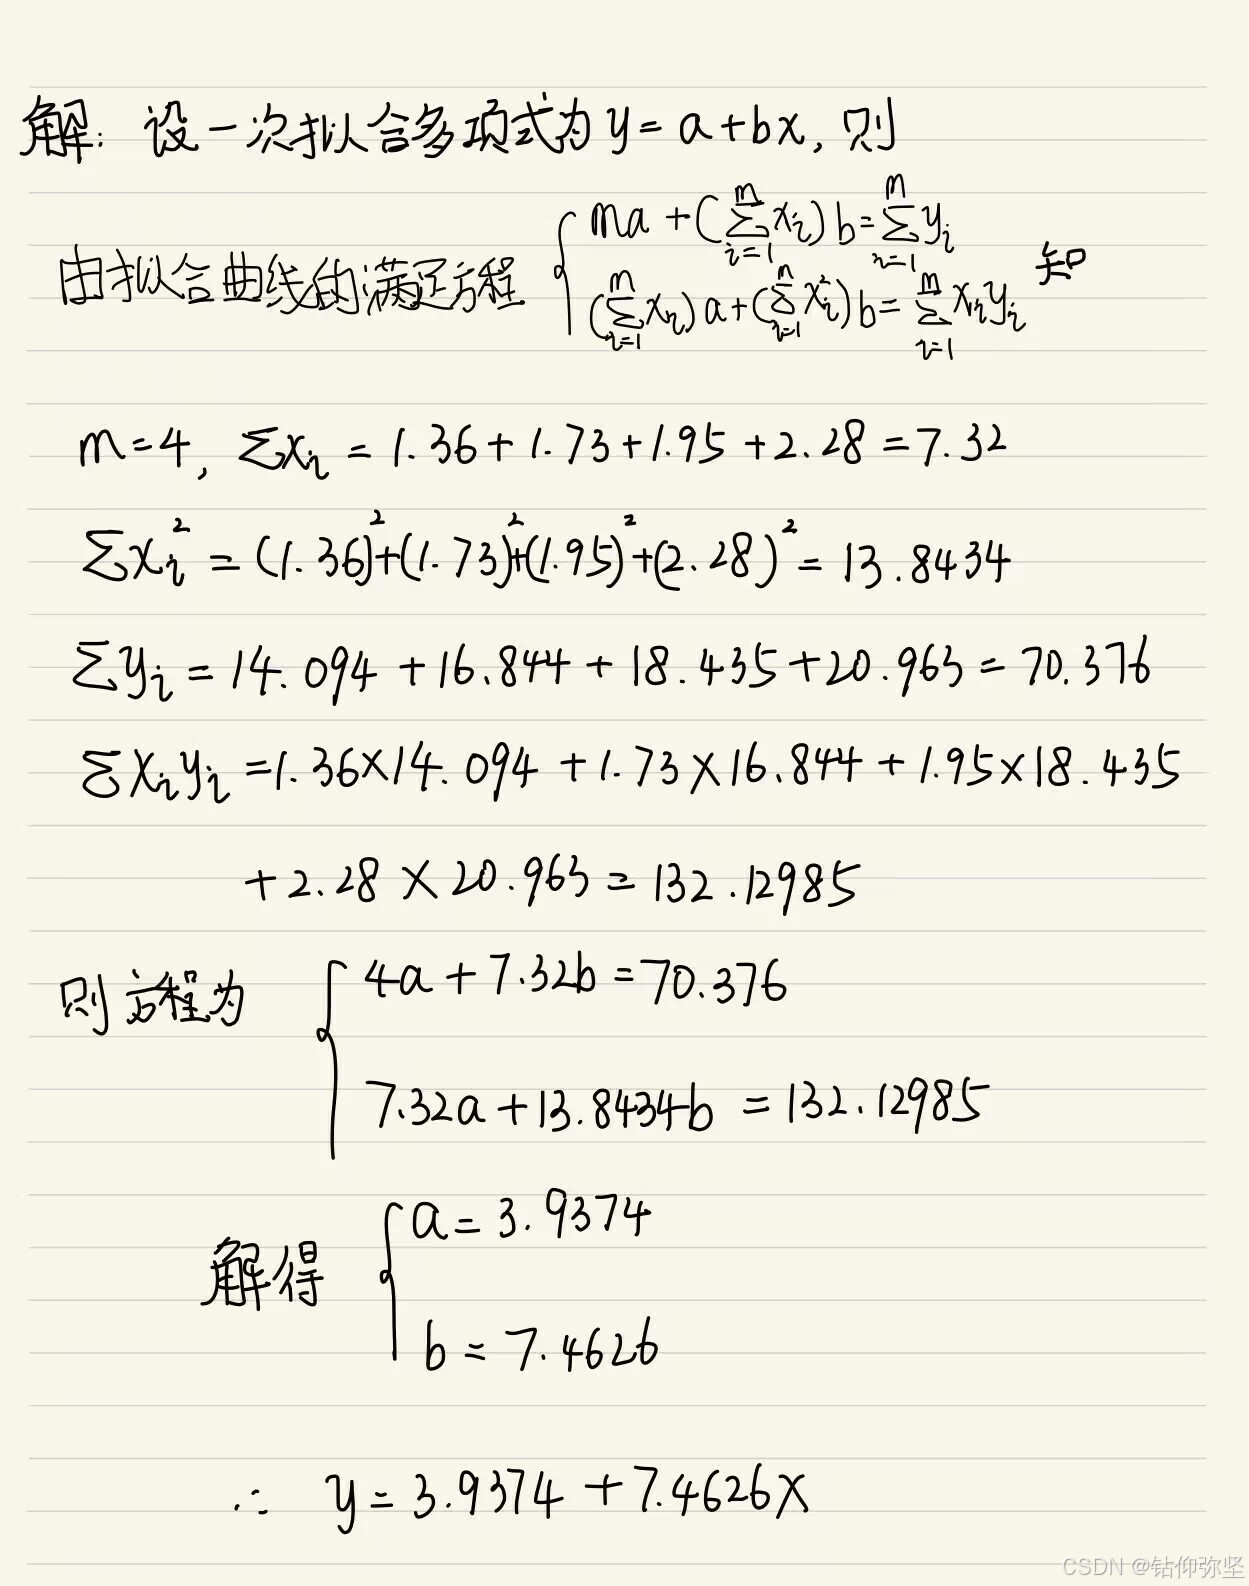 解: 设一次拟合多项式为 y = a + bx, 则
由拟合曲线的满足方程 { ma + (∑_{i=1}^{m} x_i) b = ∑_{i=1}^{m} y_i 知
(∑_{i=1}^{m} x_i) a + (∑_{i=1}^{m} x_i^2) b = ∑_{i=1}^{m} x_i y_i
m = 4, ∑x_i = 1.36 + 1.73 + 1.95 + 2.28 = 7.32
∑x_i^2 = (1.36)^2 + (1.73)^2 + (1.95)^2 + (2.28)^2 = 13.8434
∑y_i = 14.094 + 16.844 + 18.435 + 20.963 = 70.376
∑x_i y_i = 1.36 × 14.094 + 1.73 × 16.844 + 1.95 × 18.435
+ 2.28 × 20.963 = 132.12985
则方程为 { 4a + 7.32b = 70.376
7.32a + 13.8434b = 132.12985
解得 { a = 3.9374
b = 7.4626
∴ y = 3.9374 + 7.4626x
CSDN @钻仰弥坚